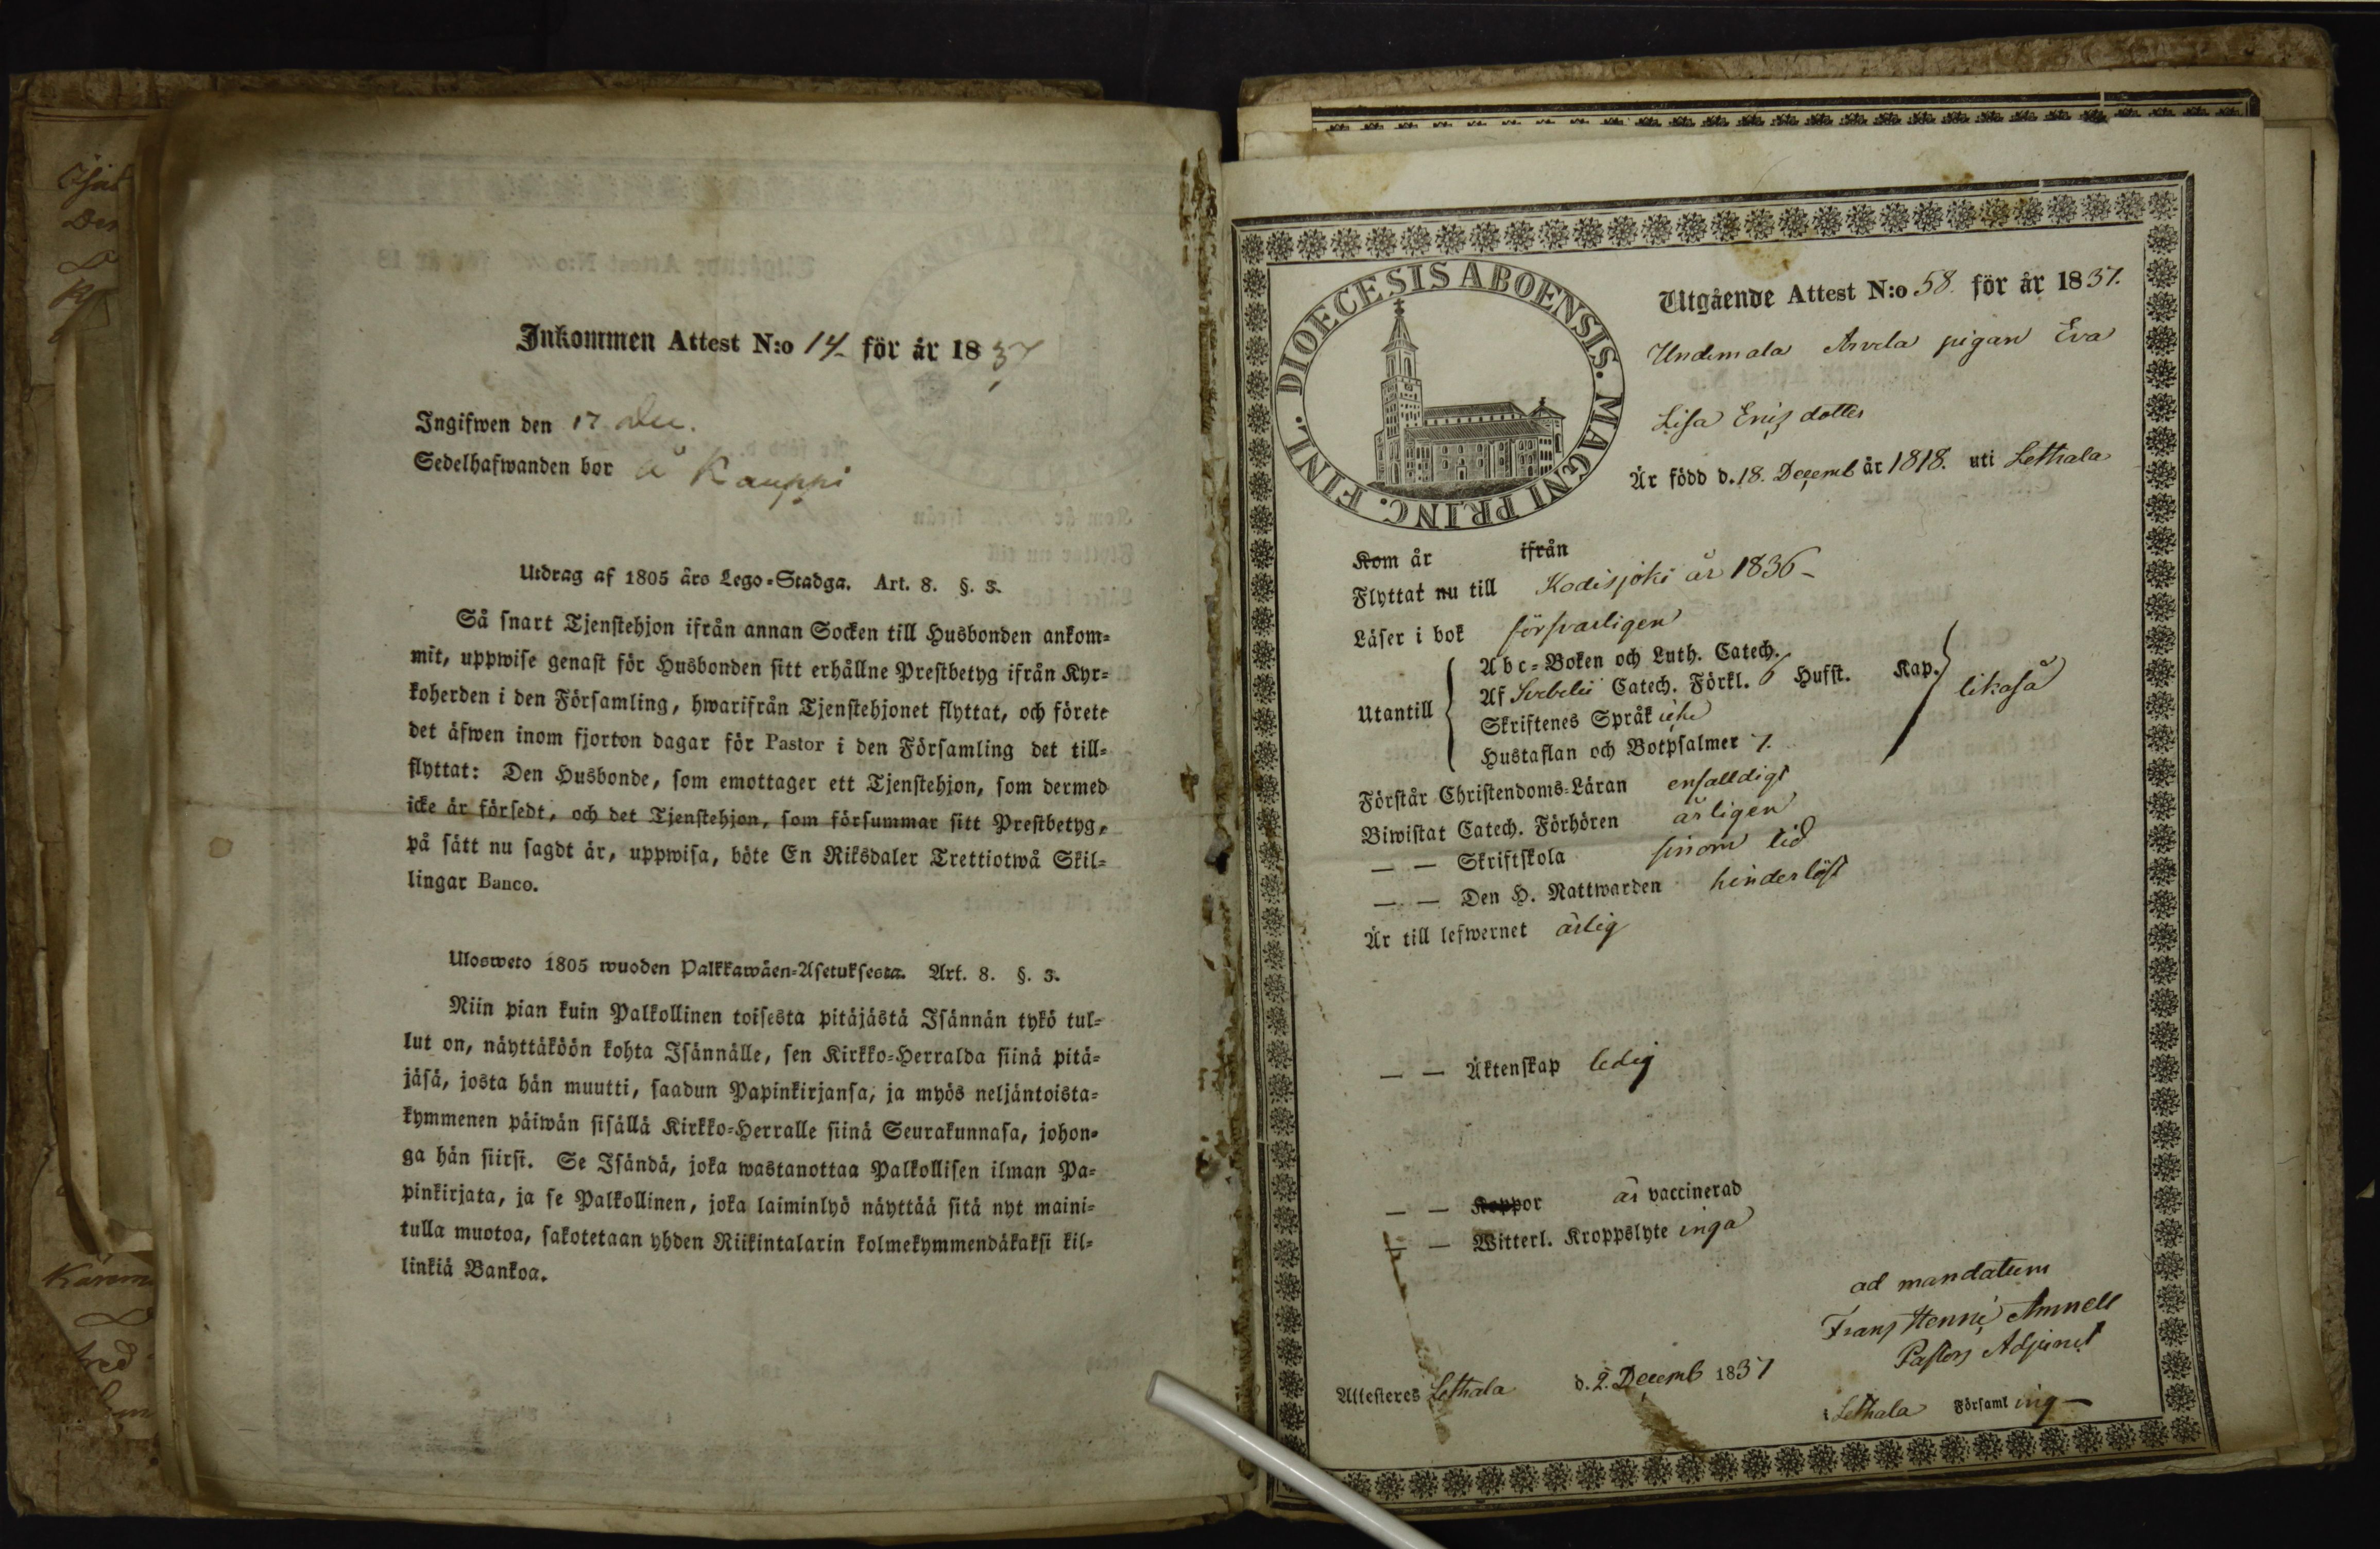 Inkommen Attest N:o 14 för år 1837
Ingifwen den 17 Dec.
Sedelhafwanden bor å Kauppi
Utdrag af 1805 års Lego-Stadga. Art. 8. §. 3.
Så snart Tjenstehjon ifrån annan Socken till Husbonden ankom-
mit, uppwise genast för Husbonden sitt erhållne Prestbetyg ifrån Kyr-
koherden i den Församling, hwarifrån Tjenstehjonet flyttat, och förete
det äfwen inom fjorton dagar för Pastor i den Församling det till-
flyttat: Den Husbonde, som emottager ett Tjenstehjon, som dermed
icke är försedt, och det Tjenstehjon, som försummar sitt Prestbetyg,
på sätt nu sagdt är, uppwisa, böte En Riksdaler Trettiotwå Skil-
lingar Banco.
Ulosweto 1805 wuoden Palkkawäen-Asetuksesta. Art. 8. §. 3.
Niin pian kuin Palkollinen toisesta pitäjästä Isännän tykö tul-
lut on, näyttäköön kohta Isännälle, sen Kirkko-Herralda siinä pitä-
jäsä, josta hän muutti, saadun Papinkirjansa, ja myös neljäntoista-
kymmenen päiwän sisällä Kirkko-Herralle siinä Seurakunnasa, johon-
ga hän siirsi. Se Isändä, joka wastanottaa Palkollisen ilman Pa-
pinkirjata, ja se Palkollinen, joka laiminlyö näyttää sitä nyt maini-
tulla muotoa, sakotetaan yhden Riikintalarin kolmekymmendäkaksi kil-
linkiä Bankoa.
DIOECESIS ABOENSIS. MAGNI PRINC. FINL.
Utgående Attest N:o 58. för år 1837.
Undemala Arvela pigan Eva
Lisa Ericsdotter
Är född d. 18. Decemb år 1818. uti Letthala
Kom år ifrån
Flyttat nu till Kodisjoki år 1836 –
Läser i bok försvarligen
Utantill
Abc-Boken och Luth. Catech.
Af Svebelii Catech. Förkl. 6 Hufst. Kap.
Skriftenes Språk icke
Hustaflan och Botpsalmer 7.
likaså
Förstår Christendoms-Läran enfalldigt
Biwistat Catech. Förhören årligen
— — Skriftskola sinom tid
— — Den H. Nattwarden hinderlöst
Är till lefwernet ärlig
— — Äktenskap ledig
— — Koppor är vaccinerad
— — Witterl. Kroppslyte inga
ad mandatum
Frans Henric Amnell
Pastors Adjunct
Attesteres Letthala d. 2. Decemb 1837
i Letthala Församling –